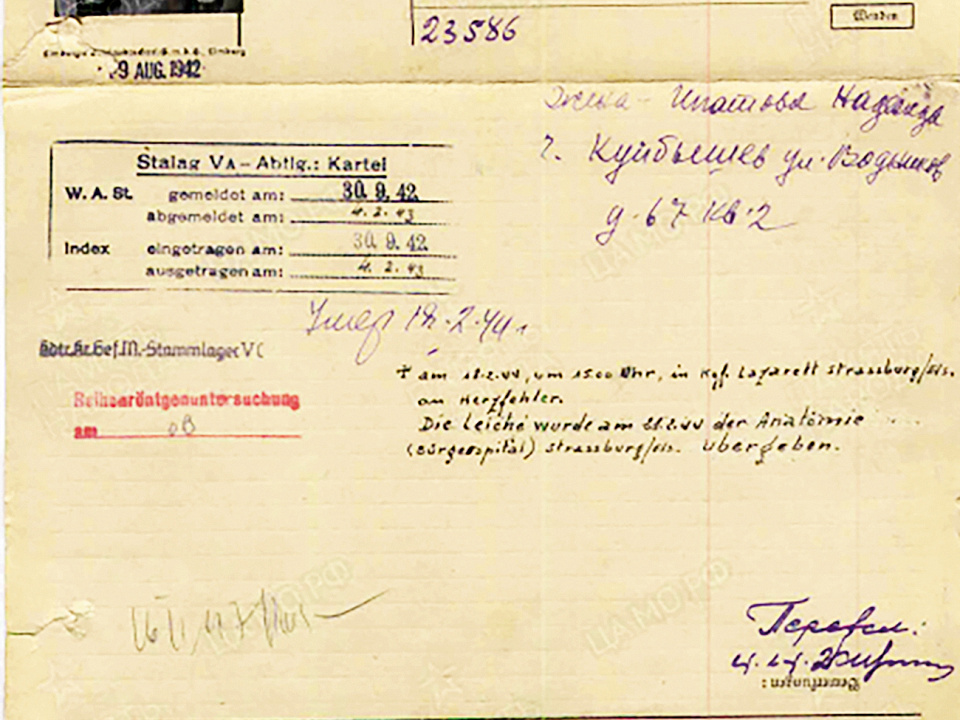 23586
Wenden
9 AUG. 1942
Жена - Ипатова Надежда
г. Куйбышев ул. Водников
д. 67 кв. 2
Stalag VA – Abtlg.: Kartei
W. A. St. gemeldet am: 30. 9. 42.
abgemeldet am: 4. 2. 43
Index eingetragen am: 30. 9. 42.
ausgetragen am: 4. 2. 43
Умер 18.2.44 г
Kr. Gef. M.-Stammlager V C
† am 18.2.44, um 15.00 Uhr, in Kgf. Lazarett Strassburg/Els.
an Herzfehler.
Reihenröntgenuntersuchung
am oB
Die Leiche wurde am 21.2.44 der Anatomie
(Bürgerspital) Strassburg/Els. übergeben.
Перевел:
Bemerkungen:
ЦАМО РФ